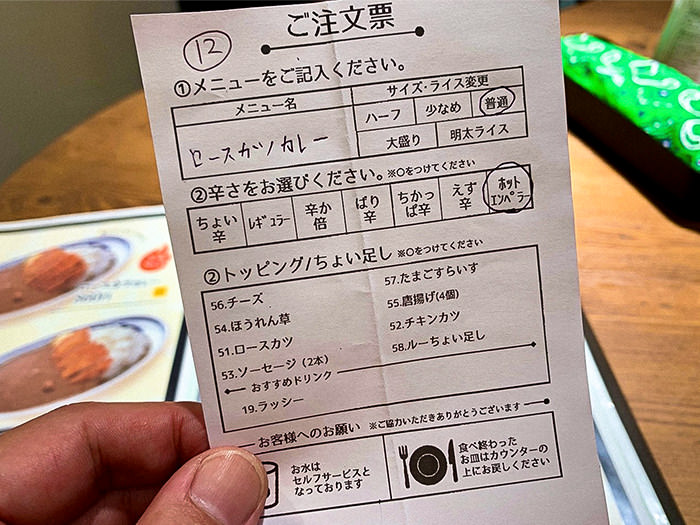 ご注文票
12
①メニューをご記入ください。
メニュー名
サイズ・ライス変更
ロースカツカレー
ハーフ 少なめ 普通
大盛り 明太ライス
②辛さをお選びください。※○をつけてください
ちょい辛 レギュラー 辛か倍 ばり辛 ちかっぱ辛 えす辛 ホットエンペラー
②トッピング/ちょい足し ※○をつけてください
56.チーズ
54.ほうれん草
51.ロースカツ
53.ソーセージ (2本)
57.たまごすらいす
55.唐揚げ(4個)
52.チキンカツ
58.ルーちょい足し
おすすめドリンク
19.ラッシー
お客様へのお願い ※ご協力いただきありがとうございます
お水は
セルフサービスと
なっております
食べ終わった
お皿はカウンターの
上にお戻しください